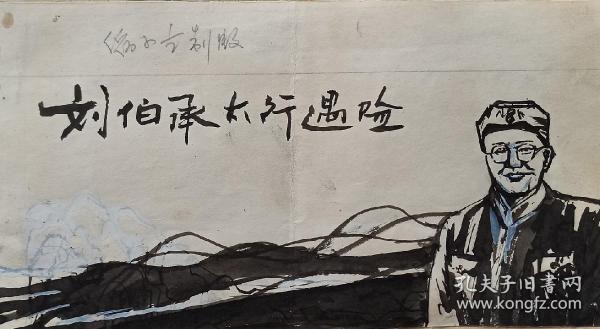 刘伯承太行遇险
孔夫子旧书网
www.kongfz.com